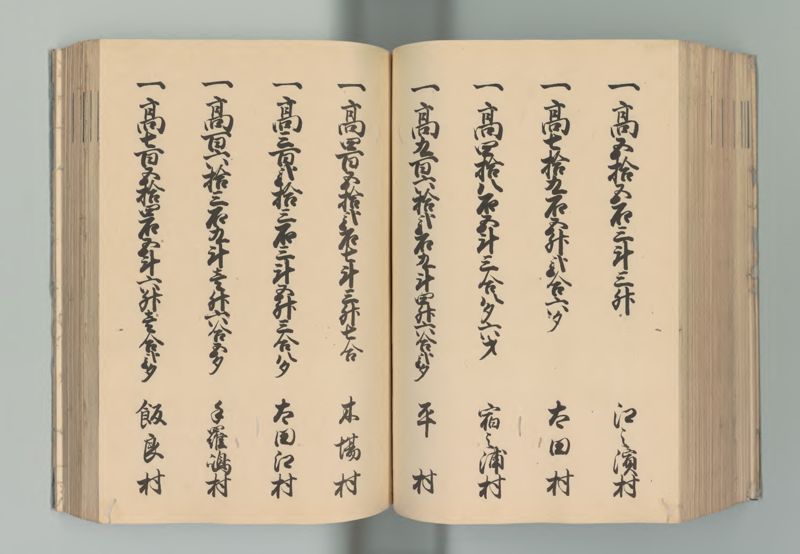 一高五拾五石三斗三升 江之濱村
一高七拾九石五升弐合六夕 太田村
一高四拾八石五斗三合八夕六才 宿之浦村
一高九百六拾弐石九斗四升六合弐夕 平村
一高四百五拾弐石七斗三升七合 木場村
一高三百弐拾三石三斗五升三合八夕 太田江村
一高百六拾三石九斗壱升六合五夕 羅嶋村
一高七百五拾四石五斗六升壱合弐夕 飯良村